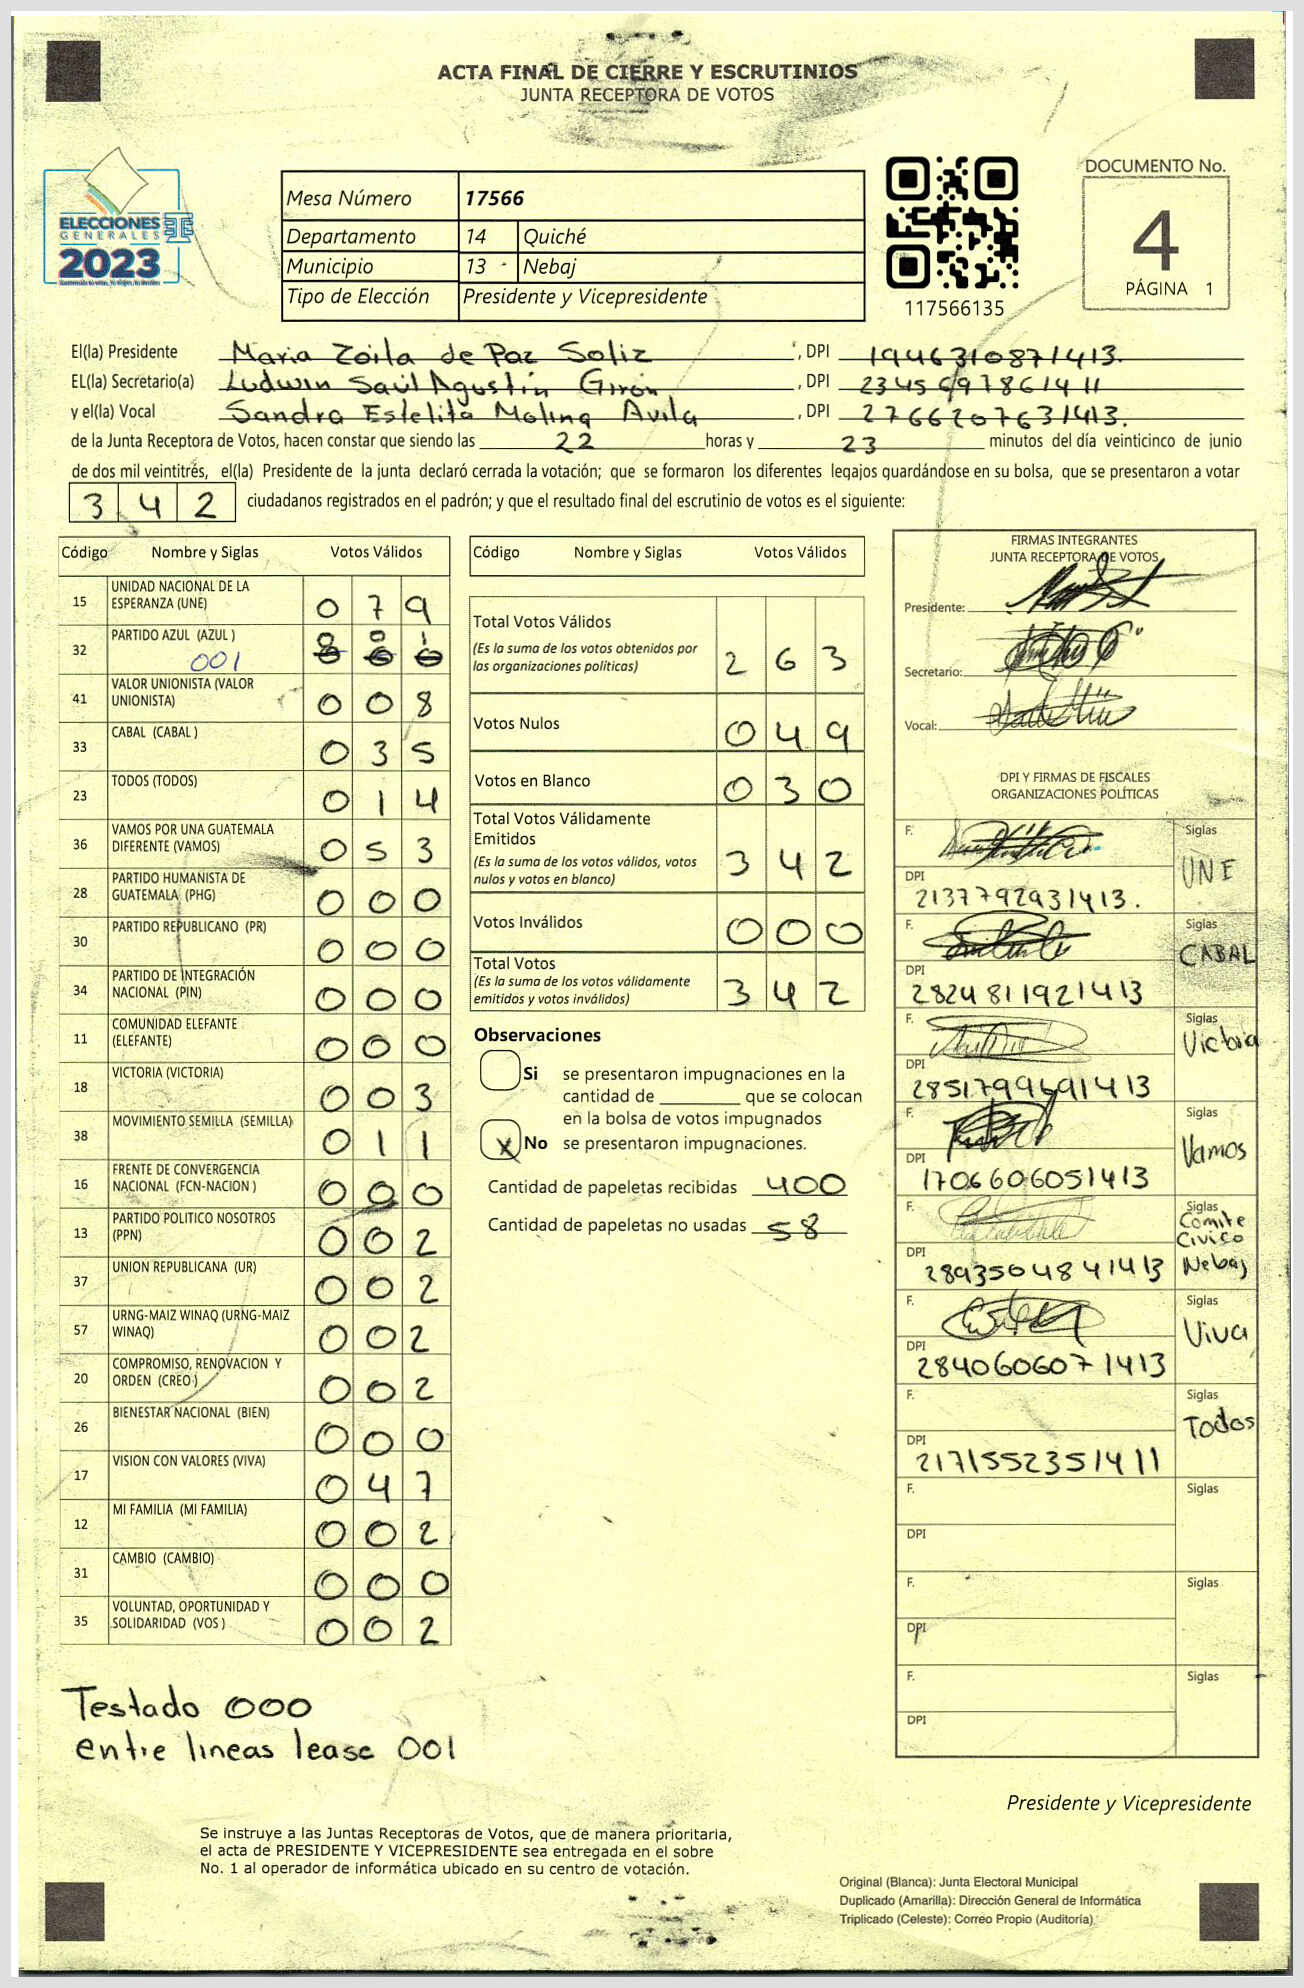 ACTA FINAL DE CIERRE Y ESCRUTINIOS
JUNTA RECEPTORA DE VOTOS
ELECCIONES
GENERALES
2023
Mesa Número 17566
Departamento 14 Quiché
Municipio 13 Nebaj
Tipo de Elección Presidente y Vicepresidente
117566135
DOCUMENTO No.
4
PÁGINA 1
El(la) Presidente Maria Zoila de Paz Soliz, DPI 1946310871413.
EL(la) Secretario(a) Ludwin Saúl Agustín Girón, DPI 2345997861411
y el(la) Vocal Sandra Estelita Molina Avila, DPI 2766207631413.
de la Junta Receptora de Votos, hacen constar que siendo las 22 horas y 23 minutos del día veinticinco de junio
de dos mil veintitrés, el(la) Presidente de la junta declaró cerrada la votación; que se formaron los diferentes legajos guardándose en su bolsa, que se presentaron a votar
342 ciudadanos registrados en el padrón; y que el resultado final del escrutinio de votos es el siguiente:
Código Nombre y Siglas Votos Válidos
15 UNIDAD NACIONAL DE LA ESPERANZA (UNE) 079
32 PARTIDO AZUL (AZUL ) 001
001
41 VALOR UNIONISTA (VALOR UNIONISTA) 008
33 CABAL (CABAL ) 035
23 TODOS (TODOS) 014
36 VAMOS POR UNA GUATEMALA DIFERENTE (VAMOS) 053
28 PARTIDO HUMANISTA DE GUATEMALA (PHG) 000
30 PARTIDO REPUBLICANO (PR) 000
34 PARTIDO DE INTEGRACIÓN NACIONAL (PIN) 000
11 COMUNIDAD ELEFANTE (ELEFANTE) 000
18 VICTORIA (VICTORIA) 003
38 MOVIMIENTO SEMILLA (SEMILLA) 011
16 FRENTE DE CONVERGENCIA NACIONAL (FCN-NACION ) 000
13 PARTIDO POLITICO NOSOTROS (PPN) 002
37 UNION REPUBLICANA (UR) 002
57 URNG-MAIZ WINAQ (URNG-MAIZ WINAQ) 002
20 COMPROMISO, RENOVACION Y ORDEN (CREO ) 002
26 BIENESTAR NACIONAL (BIEN) 000
17 VISION CON VALORES (VIVA) 047
12 MI FAMILIA (MI FAMILIA) 002
31 CAMBIO (CAMBIO) 000
35 VOLUNTAD, OPORTUNIDAD Y SOLIDARIDAD (VOS ) 002
Testado 000
entre lineas lease 001
Código Nombre y Siglas Votos Válidos
Total Votos Válidos
(Es la suma de los votos obtenidos por
las organizaciones políticas) 263
Votos Nulos 049
Votos en Blanco 030
Total Votos Válidamente
Emitidos
(Es la suma de los votos válidos, votos
nulos y votos en blanco) 342
Votos Inválidos 000
Total Votos
(Es la suma de los votos válidamente
emitidos y votos inválidos) 342
Observaciones
Si se presentaron impugnaciones en la
cantidad de ________ que se colocan
en la bolsa de votos impugnados
x No se presentaron impugnaciones.
Cantidad de papeletas recibidas 400
Cantidad de papeletas no usadas 58
FIRMAS INTEGRANTES
JUNTA RECEPTORA DE VOTOS
Presidente:
Secretario:
Vocal:
DPI Y FIRMAS DE FISCALES
ORGANIZACIONES POLÍTICAS
F. Siglas
UNE
DPI 2137792931413.
F. Siglas
CABAL
DPI 2824811921413
F. Siglas
Victoria
DPI 2851799691413
F. Siglas
Vamos
DPI 1706606051413
F. Siglas
Comite
Civico
Nebaj
DPI 2893504841413
F. Siglas
Viva
DPI 2840606071413
F. Siglas
Todos
DPI 2171552351411
F. Siglas
DPI
F. Siglas
DPI
F. Siglas
DPI
Presidente y Vicepresidente
Se instruye a las Juntas Receptoras de Votos, que de manera prioritaria,
el acta de PRESIDENTE Y VICEPRESIDENTE sea entregada en el sobre
No. 1 al operador de informática ubicado en su centro de votación.
Original (Blanca): Junta Electoral Municipal
Duplicado (Amarilla): Dirección General de Informática
Triplicado (Celeste): Correo Propio (Auditoría)